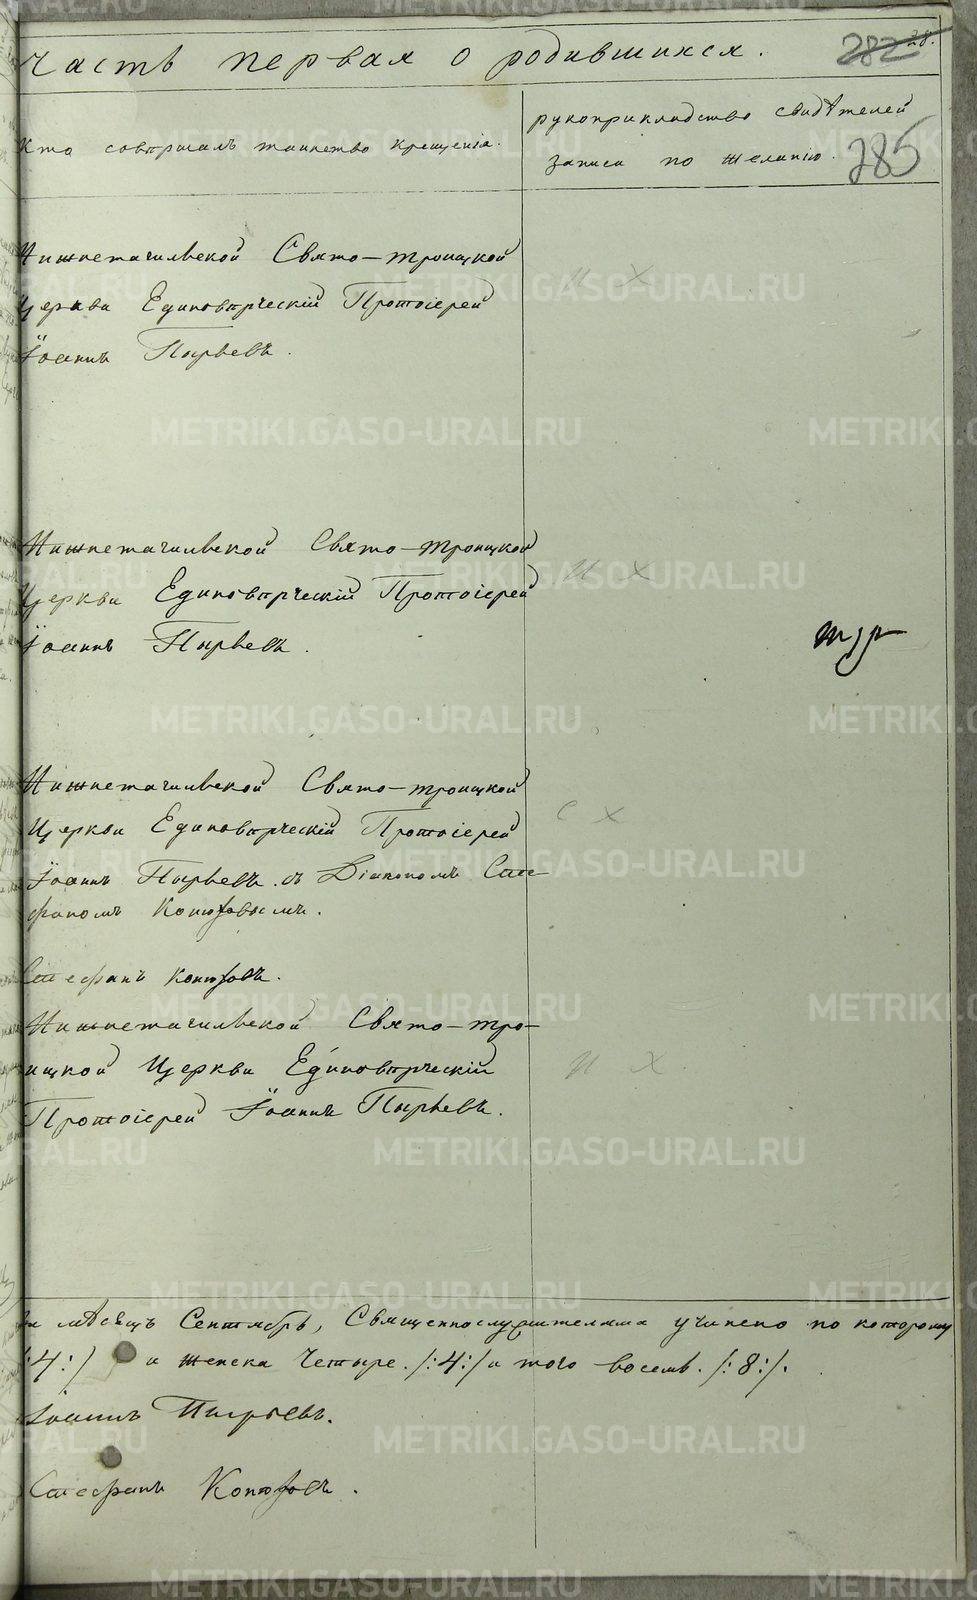 Часть первая о родившихся. 282 28.
Кто совершалъ таинство крещенія.
рукоприкладство свидѣтелей
записи по желанію. 285
Нижнетагильской Свято-троицкой
Церкви Единовѣрческій Протоіерей
Іоаннъ Пырьевъ.
и х
Нижнетагильской Свято-троицкой
Церкви Единовѣрческій Протоіерей
Іоаннъ Пырьевъ.
и х
Нижнетагильской Свято-троицкой
Церкви Единовѣрческій Протоіерей
Іоаннъ Пырьевъ. съ Діакономъ Сте-
фаномъ Конюховымъ.
с х
Стефанъ Конюховъ.
Нижнетагильской Свято-тро-
ицкой Церкви Единовѣрческій
Протоіерей Іоаннъ Пырьевъ.
и х
мѣсяцъ Сентябрь, Священнослужителями учинено по которому
/:4:/ и женска четыре. /:4:/ и того восемь. /:8:/.
Іоаннъ Пырьевъ.
Стефанъ Конюховъ.
METRIKI.GASO-URAL.RU